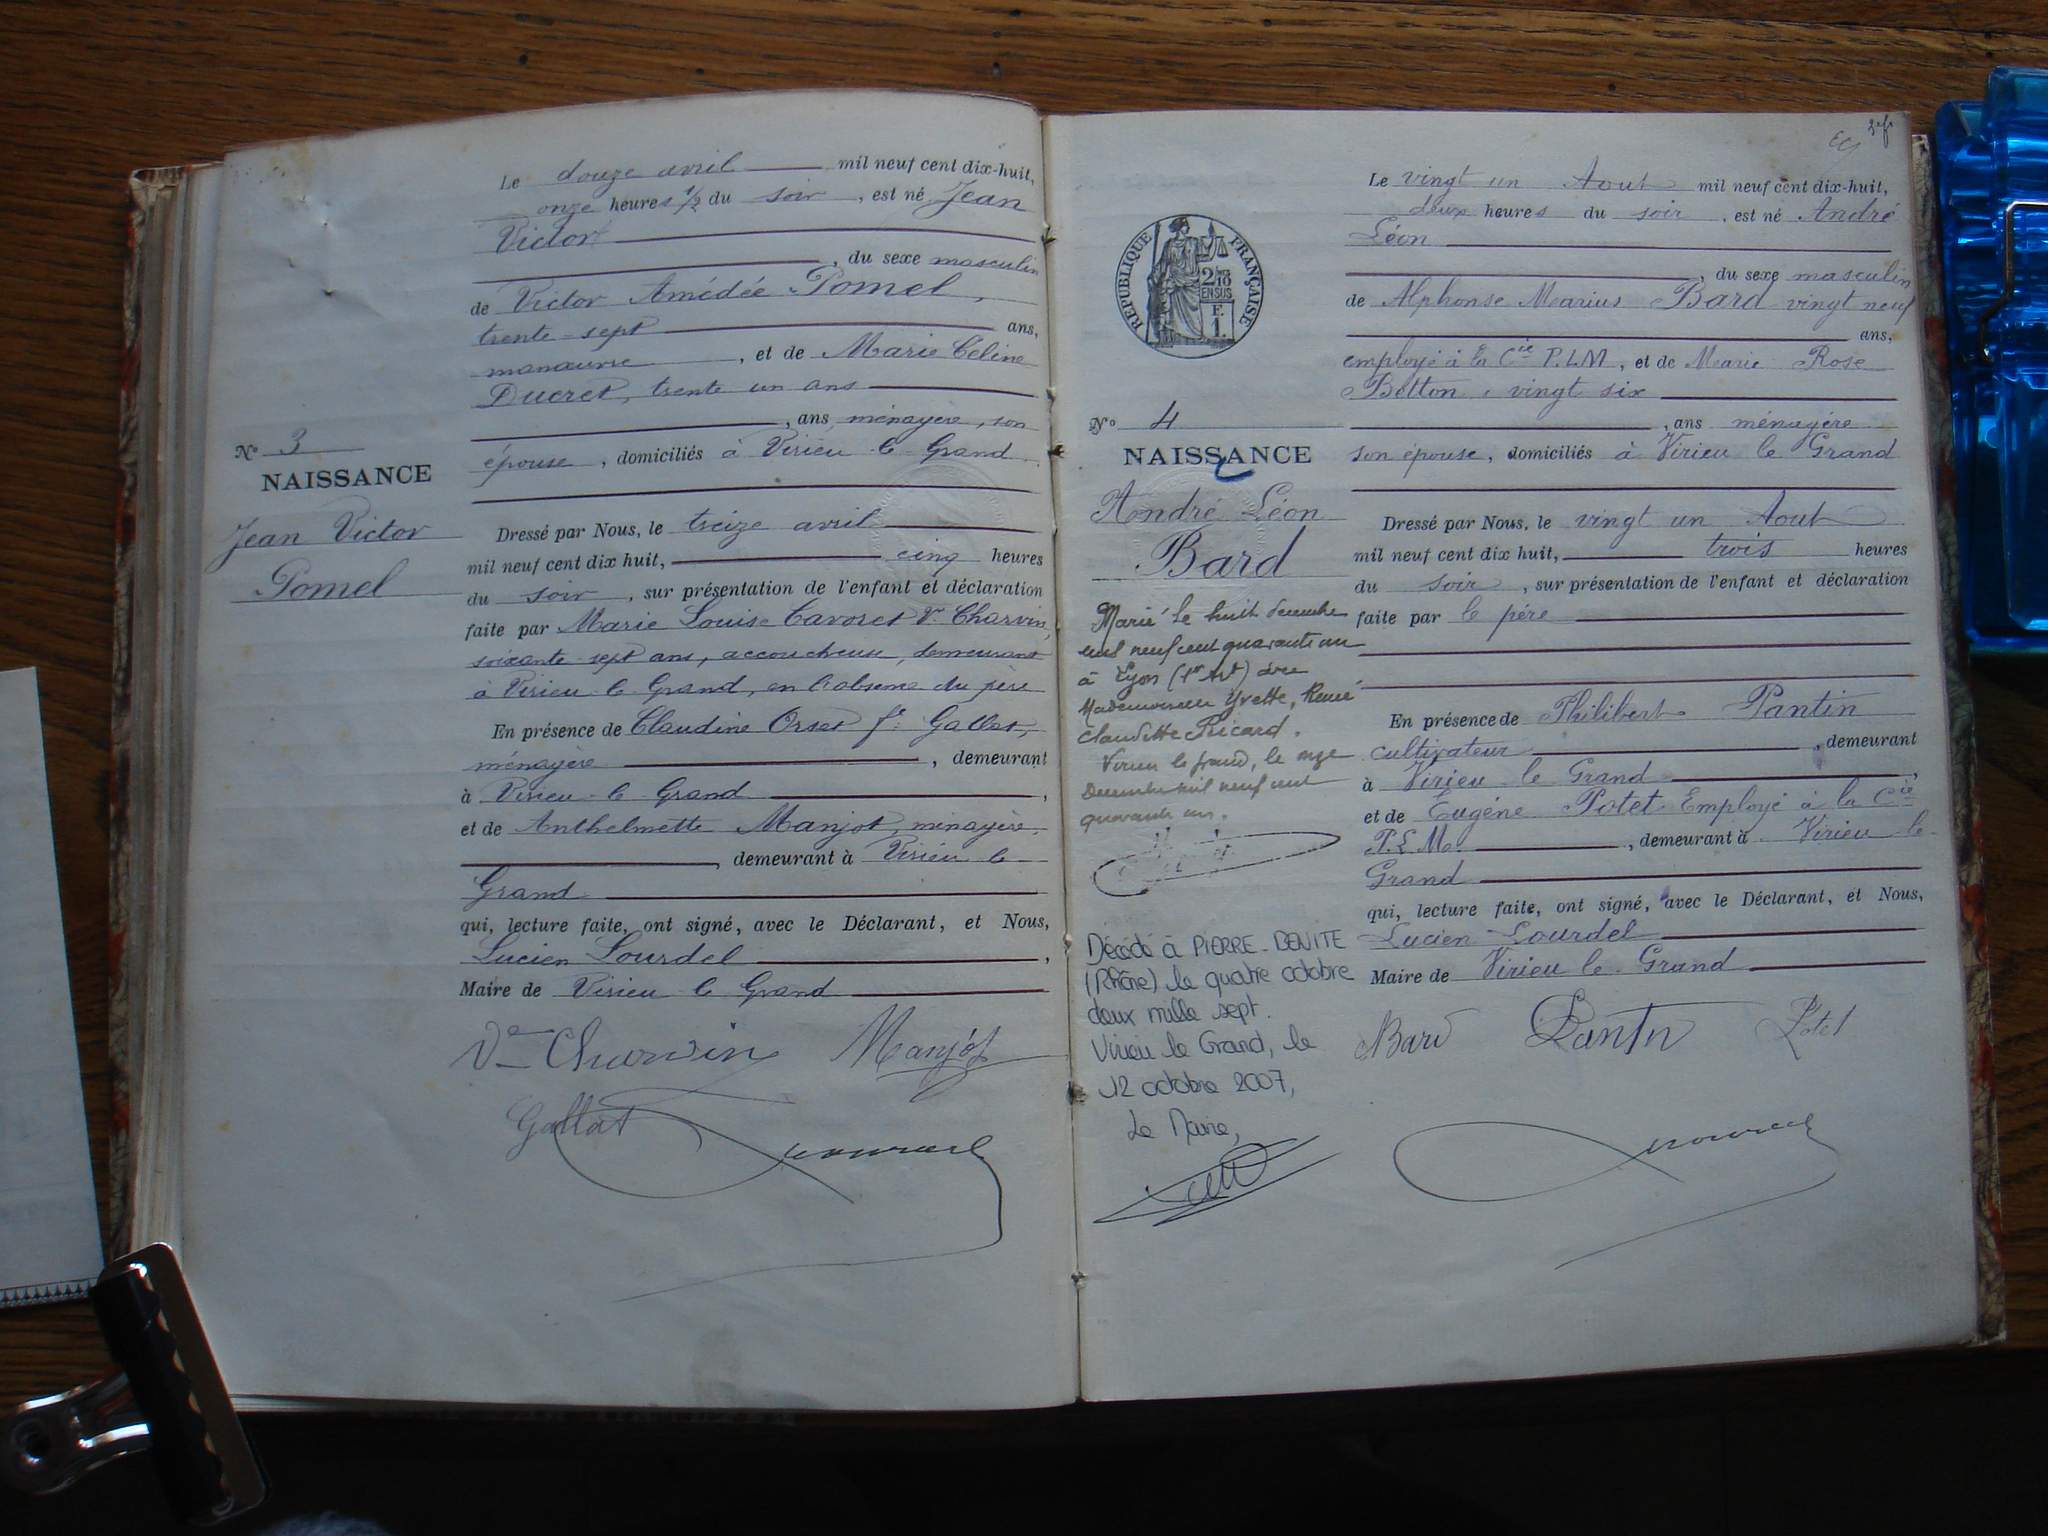 Le douze avril mil neuf cent dix-huit,
onze heures 1/2 du soir, est né Jean
Victor
, du sexe masculin
de Victor Amédée Pomel,
trente-sept ans,
manœuvre, et de Marie Celine
Ducret, trente un ans
, ans ménagère, son
épouse, domiciliés à Virieu-le-Grand.
Nº 3
NAISSANCE
Jean Victor
Pomel
Dressé par Nous, le treize avril
mil neuf cent dix huit, cinq heures
du soir, sur présentation de l'enfant et déclaration
faite par Marie Louise Tavoret Vve Charvin,
soixante-sept ans, accoucheuse, demeurant
à Virieu-le-Grand, en l'absence du père
En présence de Claudine Orset fe Gallat,
ménagère, demeurant
à Virieu-le-Grand,
et de Anthelmette Manjot, ménagère,
, demeurant à Virieu le
Grand
qui, lecture faite, ont signé, avec le Déclarant, et Nous,
Lucien Lourdel,
Maire de Virieu le Grand
Vve Charvin Manjot
Gallat
2 f
RÉPUBLIQUE FRANÇAISE
2/10
EN SUS
F.
1.
Le vingt un Aout mil neuf cent dix-huit,
deux heures du soir, est né André
Léon
, du sexe masculin
de Alphonse Marius Bard vingt neuf
ans,
employé à la Cie P.L.M, et de Marie Rose
Betton, vingt six
, ans ménagère
son épouse, domiciliés à Virieu le Grand
Nº 4
NAISSANCE
André Léon
Bard
Marié le huit decembre
mil neuf cent quarante un
à Lyon (1er Art) avec
Mademoiselle Yvette, Renée
Claudette Ricard.
Virieu le grand, le onze
Decembre mil neuf cent
quarante un.
Décédé à PIERRE-BENITE
(Rhône) le quatre octobre
deux mille sept.
Virieu le Grand, le
12 octobre 2007,
Le Maire,
Dressé par Nous, le vingt un Aout
mil neuf cent dix huit, trois heures
du soir, sur présentation de l'enfant et déclaration
faite par le père
En présence de Philibert Pantin
cultivateur, demeurant
à Virieu le Grand,
et de Eugène Potet Employé à la Cie
P.L.M., demeurant à Virieu-le-
Grand
qui, lecture faite, ont signé, avec le Déclarant, et Nous,
Lucien Lourdel
Maire de Virieu le Grand
Bard Pantin Potet